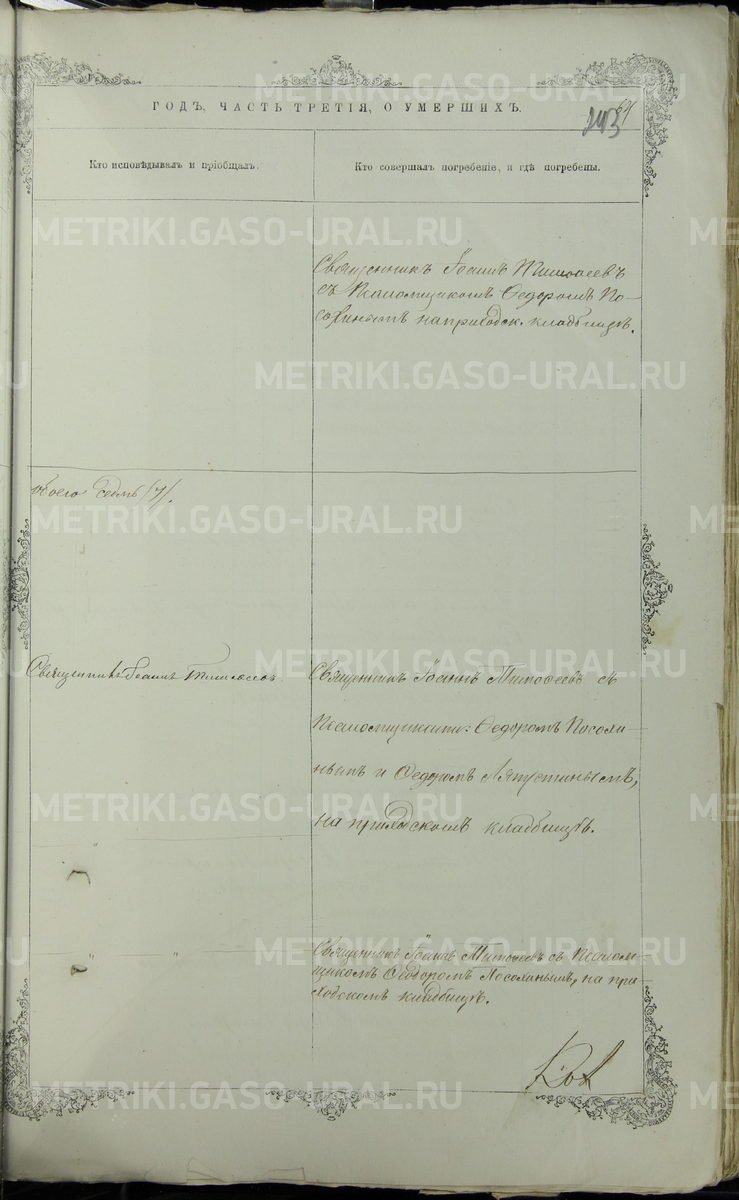 ГОДЪ, ЧАСТЬ ТРЕТІЯ, О УМЕРШИХЪ.
Кто исповѣдывалъ и пріобщалъ.
Кто совершалъ погребеніе, и гдѣ погребены.
Священникъ Іоаннъ Тимоѳеевъ
съ Псаломщикомъ Ѳедоромъ По-
сохинымъ на приходск. кладбищѣ.
седмь /7/.
Священникъ Іоаннъ Тимоѳеевъ
Священникъ Іоаннъ Тимоѳеевъ съ
Псаломщиками: Ѳедоромъ Посохи-
нымъ и Ѳедоромъ Ляпустинымъ,
на приходскомъ кладбищѣ.
Священникъ Іоаннъ Тимоѳеевъ съ Псалом-
щикомъ Ѳедоромъ Посохинымъ, на при-
ходскомъ кладбищѣ.
METRIKI.GASO-URAL.RU